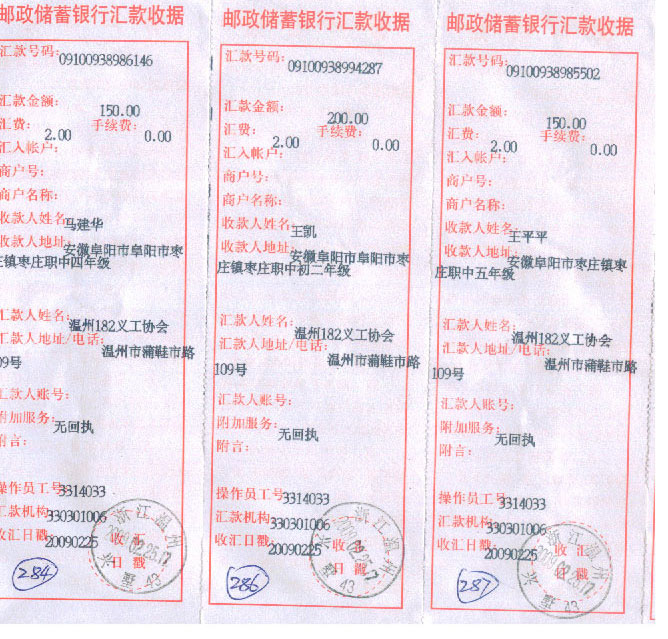 邮政储蓄银行汇款收据
汇款号码:09100938986146
汇款金额:150.00
汇费:2.00 手续费:0.00
汇入帐户:
商户号:
商户名称:
收款人姓名马建华
收款人地址:安徽阜阳市阜阳市枣
庄镇枣庄职中四年级
汇款人姓名:温州182义工协会
汇款人地址/电话:温州市蒲鞋市路
109号
汇款人账号:
附加服务:无回执
附言:
操作员工号3314033
汇款机构:330301006
收汇日戳:20090225
浙江温州
2009.02.25.17
收汇
日戳
43
284
邮政储蓄银行汇款收据
汇款号码:09100938994287
汇款金额:200.00
汇费:2.00 手续费:0.00
汇入帐户:
商户号:
商户名称:
收款人姓名:王凯
收款人地址:安徽阜阳市阜阳市枣
庄镇枣庄职中初二年级
汇款人姓名:温州182义工协会
汇款人地址/电话:温州市蒲鞋市路
109号
汇款人账号:
附加服务:无回执
附言:
操作员工号3314033
汇款机构:330301006
收汇日戳:20090225
浙江温州
收汇
日戳
43
286
邮政储蓄银行汇款收据
汇款号码:09100938985502
汇款金额:150.00
汇费:2.00 手续费:0.00
汇入帐户:
商户号:
商户名称:
收款人姓名王平平
收款人地址:安徽阜阳市枣庄镇枣
庄职中五年级
汇款人姓名:温州182义工协会
汇款人地址/电话:温州市蒲鞋市路
109号
汇款人账号:
附加服务:无回执
附言:
操作员工号3314033
汇款机构:330301006
收汇日戳:20090225
浙江温州
2009.02.25.17
收汇
日戳
43
287